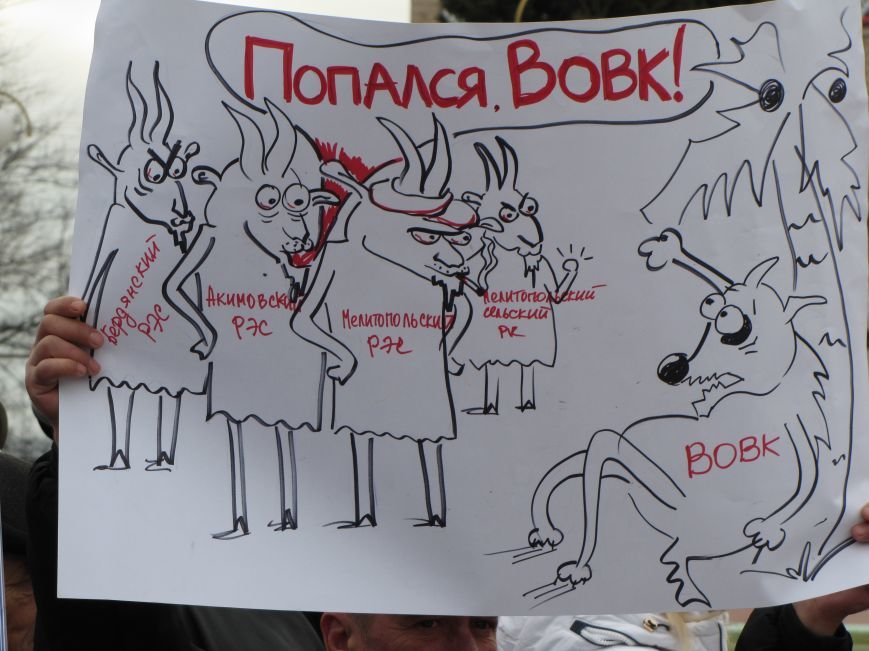 Попался, Вовк!
Бердянский
РЭС
Акимовский
РЭС
Мелитопольский
РЭС
Мелитопольский
сельский
РК
ВОВК